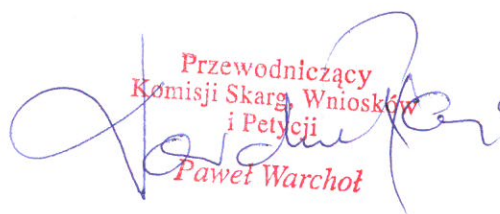 Przewodniczący
Komisji Skarg, Wniosków
i Petycji
Paweł Warchoł